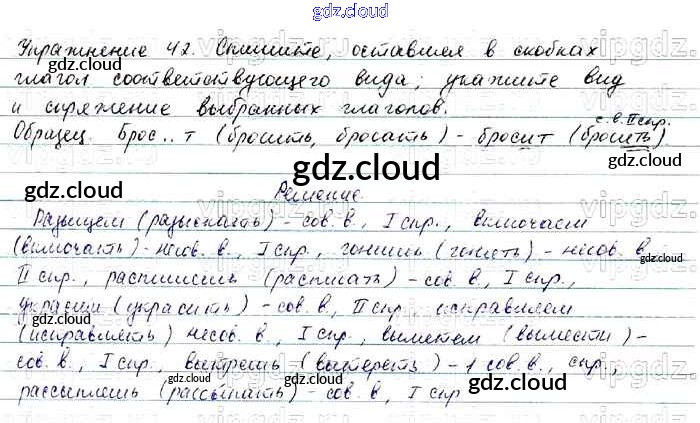 gdz.cloud
Упражнение 42. Спишите, оставляя в скобках
глагол соответствующего вида; укажите вид
и спряжение выбранных глаголов.
с.в. II спр.
Образец. Брос..т (бросить, бросать) - бросит (бросить).
gdz.cloud
gdz.cloud gdz.cloud
Решение.
Разыщем (разыскать) - сов. в., I спр., включаем
(включать) - несов. в., I спр., гонишь (гнать) - несов. в.
II спр., распишешь (расписать) - сов. в., I спр.,
украсим (украсить) - сов. в., II спр. исправляем
(исправлять) несов. в., I спр., выметем (вымести) -
сов. в., I спр., вытрешь (вытереть) - 1 сов. в., спр.,
gdz.cloud gdz.cloud gdz.cloud
рассыплешь (рассыпать) - сов. в., I спр
vipgdz.